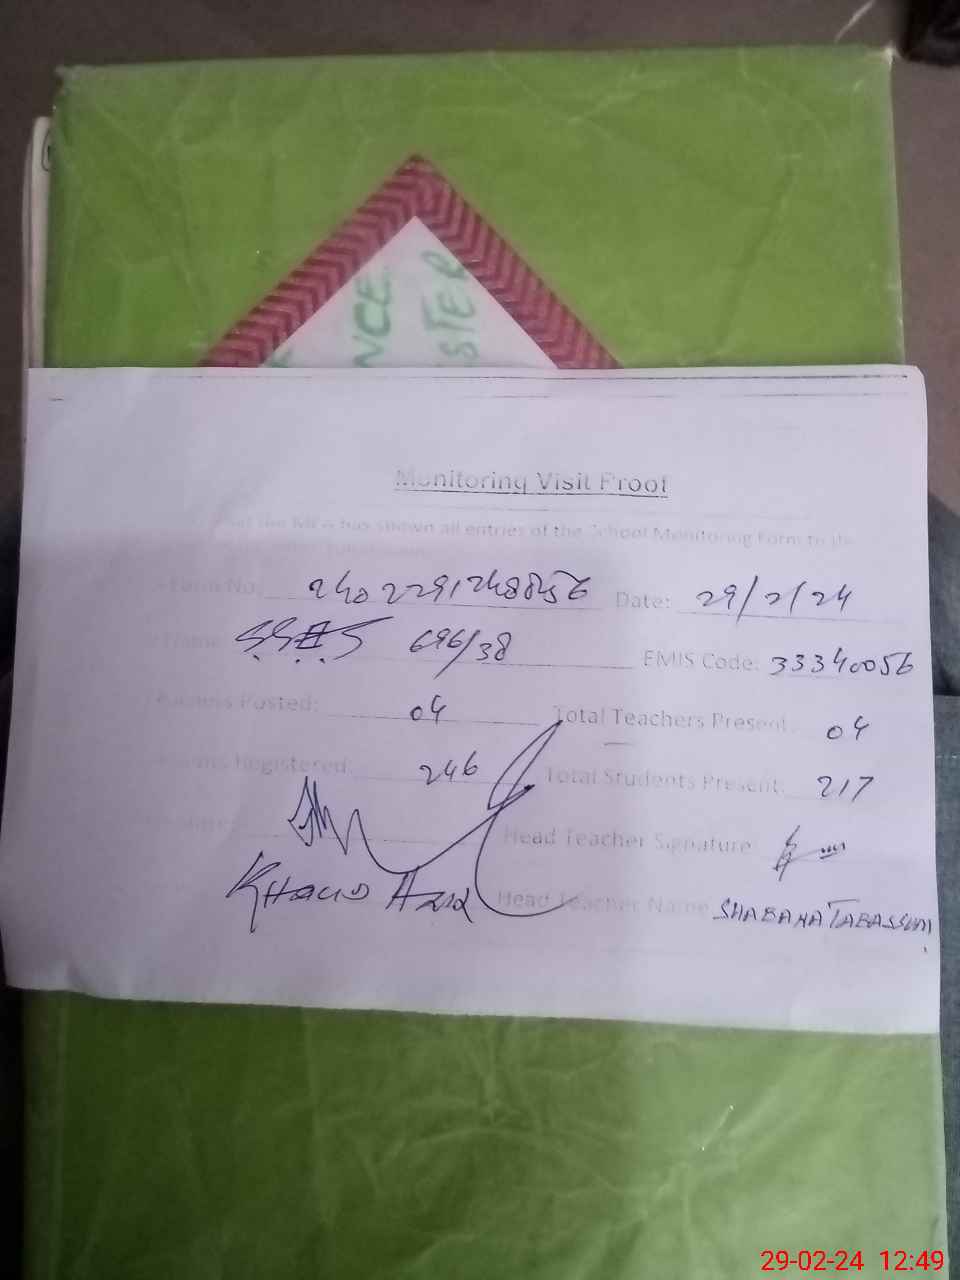 NCE
STER
Monitoring Visit Proof
the MEA has shown all entries of the School Monitoring Form to the
Form No: Date: 29/2/24
Name 696/38 EMIS Code: 33340056
Posted: 04 Total Teachers Present: 04
Registered: 246 Total Students Present: 217
Head Teacher Signature
KHALID AZIZ Head Teacher Name SHABANA TABASSUM
29-02-24 12:49